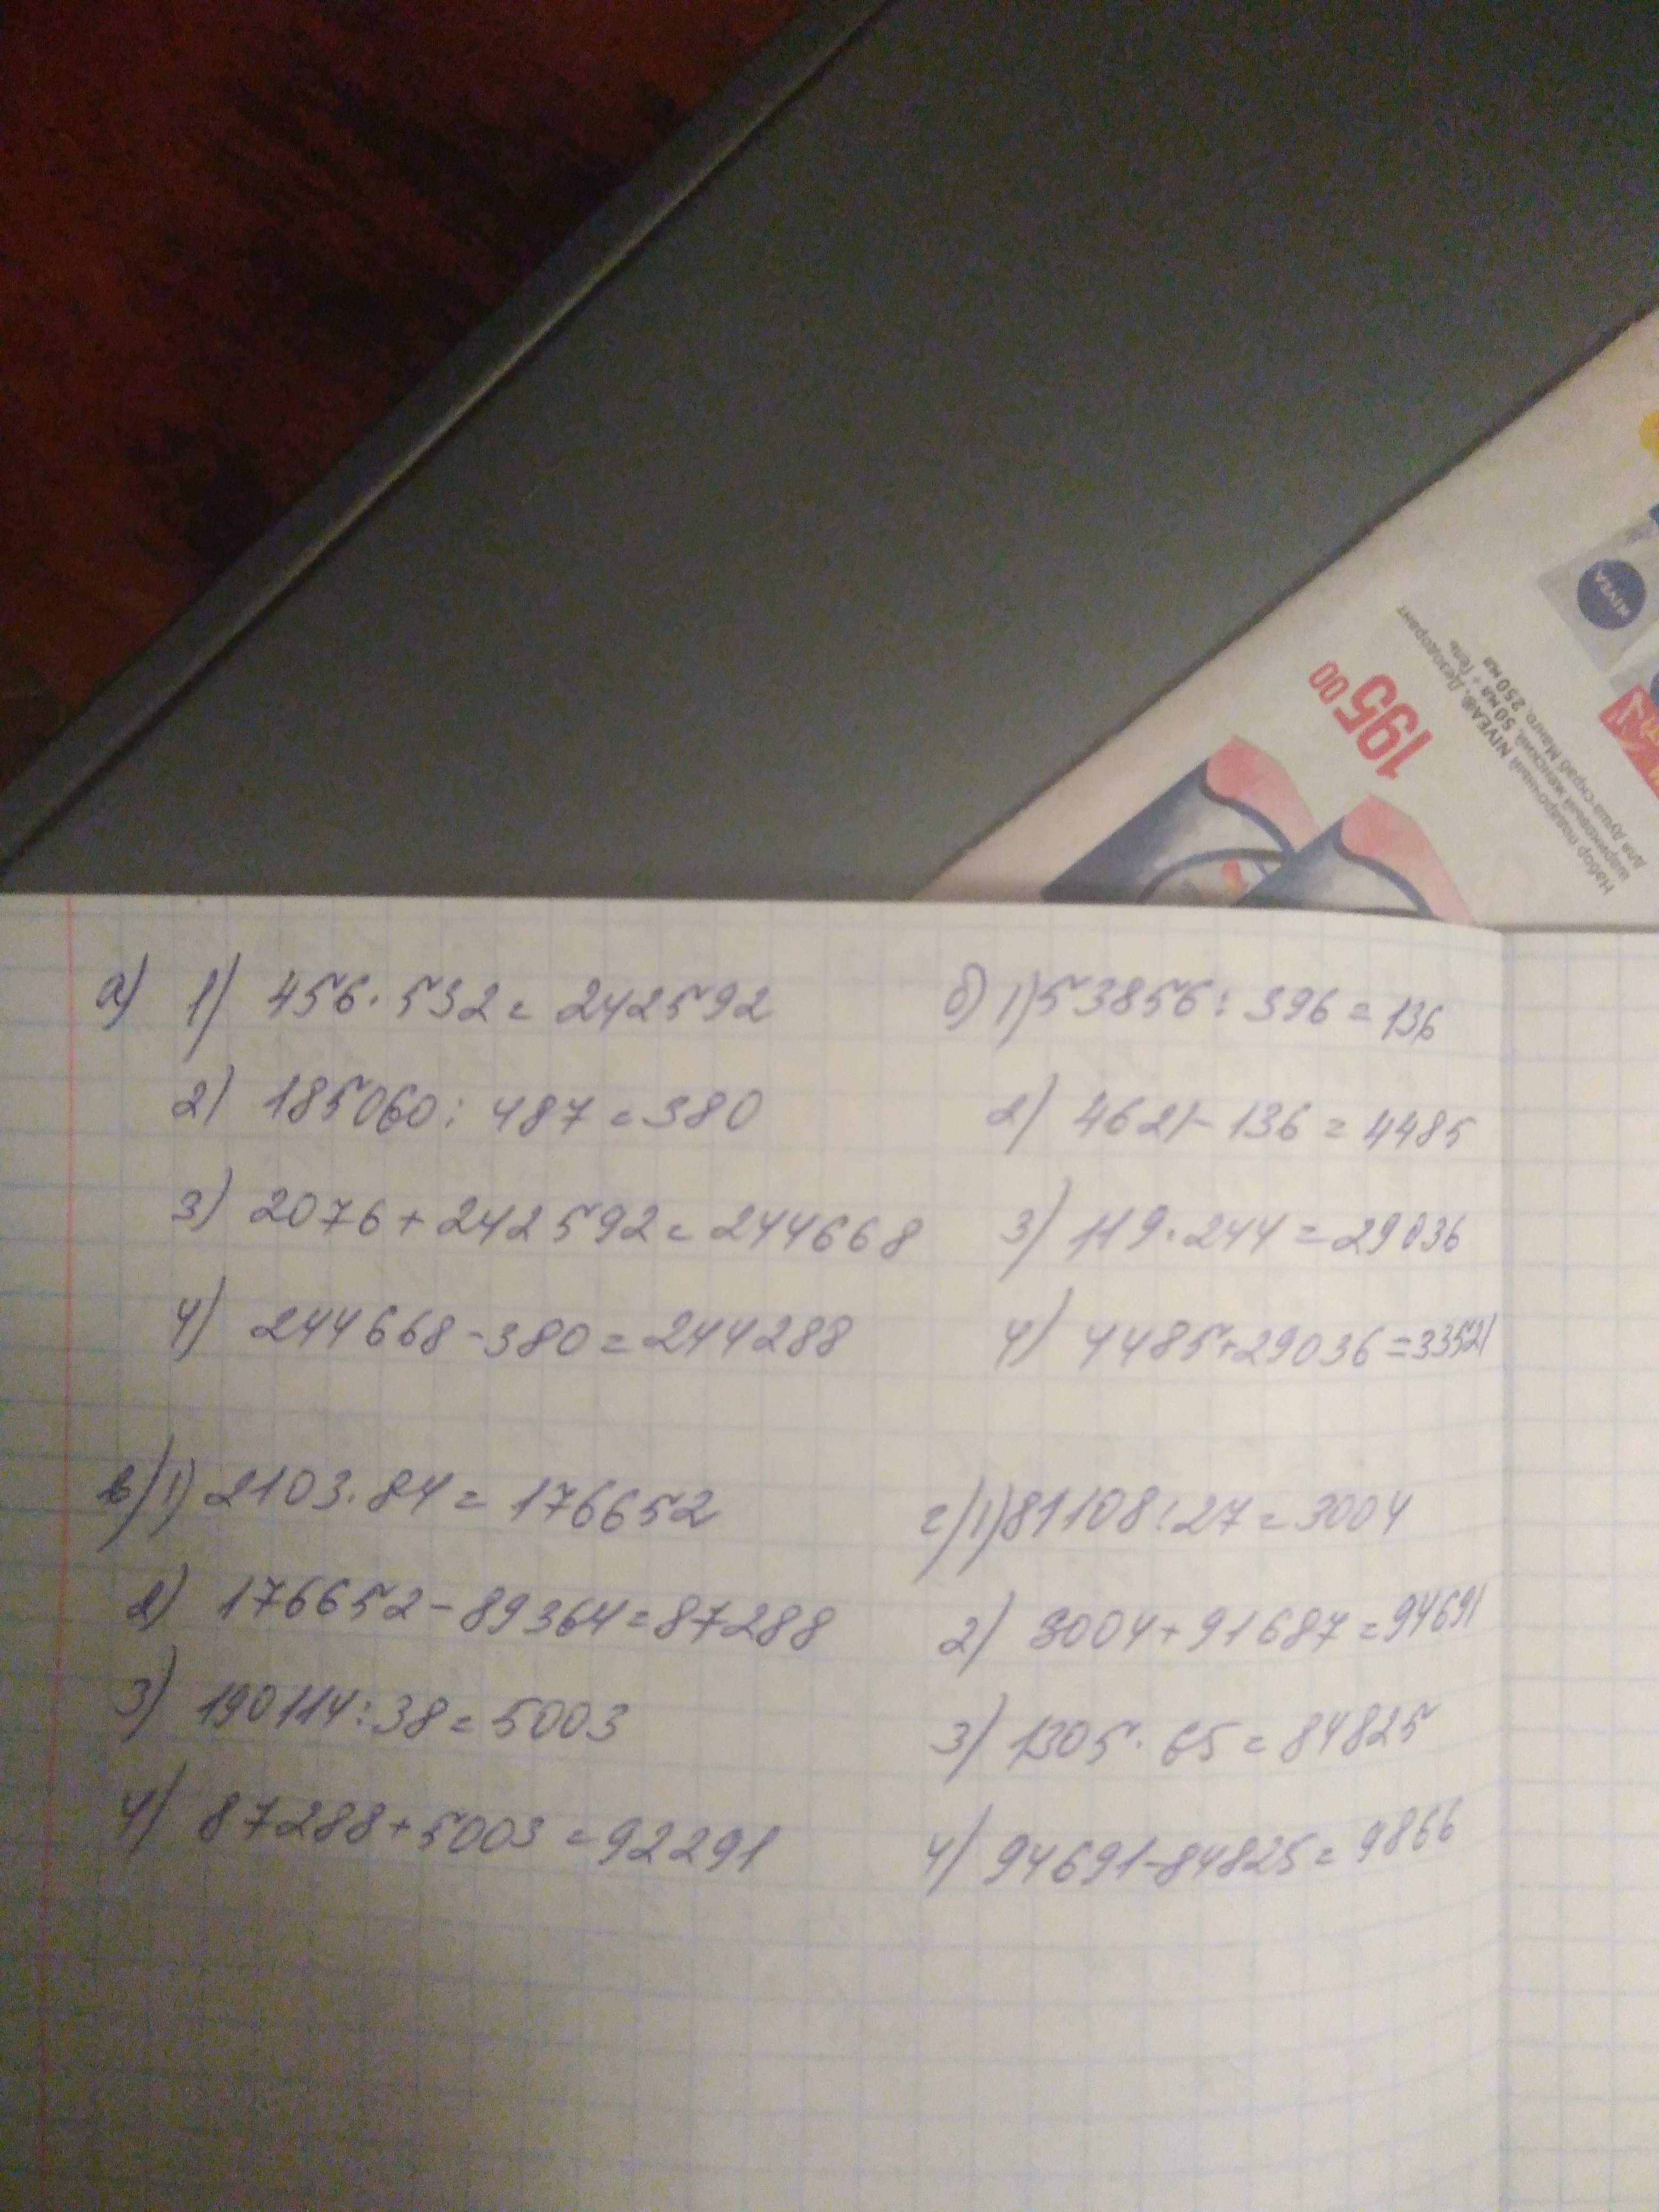 195 00
Набор подарочный NIVEA®, Дезодорант
шариковый женский, 50 мл + Гель
для душа-скраб Манго, 250 мл
NIVEA
а) 1) 456 · 532 = 242592
2) 185060 : 487 = 380
3) 2076 + 242592 = 244668
4) 244668 - 380 = 244288
б) 1) 53856 : 396 = 136
2) 4621 - 136 = 4485
3) 119 · 244 = 29036
4) 4485 + 29036 = 33521
в) 1) 2103 · 84 = 176652
2) 176652 - 89364 = 87288
3) 190114 : 38 = 5003
4) 87288 + 5003 = 92291
г) 1) 81108 : 27 = 3004
2) 3004 + 91687 = 94691
3) 1305 · 65 = 84825
4) 94691 - 84825 = 9866